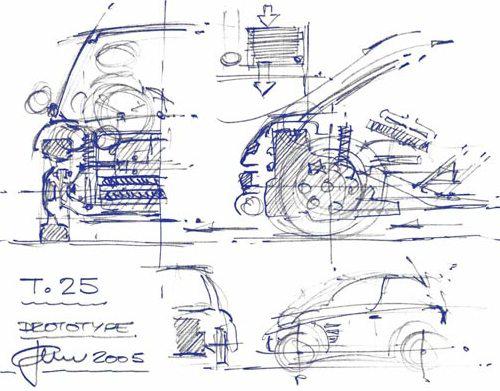 T.25
PROTOTYPE
2005